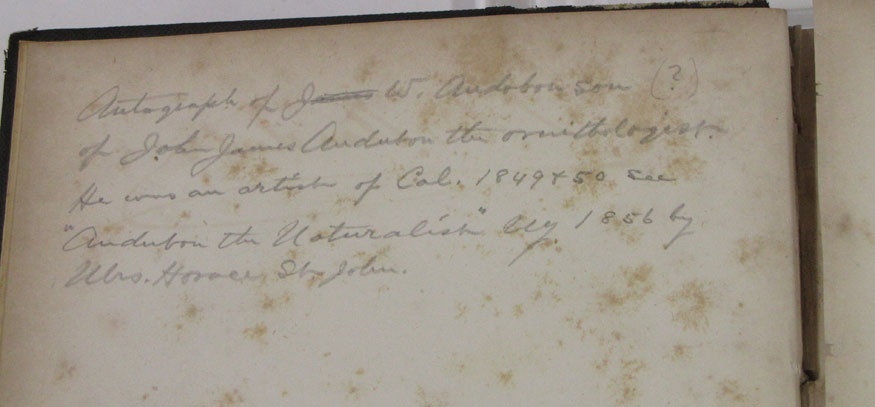 Autograph of James W. Audobon son (?)
of John James Audubon the ornithologist.
He was an artist of Cal. 1849+50 see
"Audubon the Naturalist" N.Y. 1856 by
Mrs. Horace St. John.